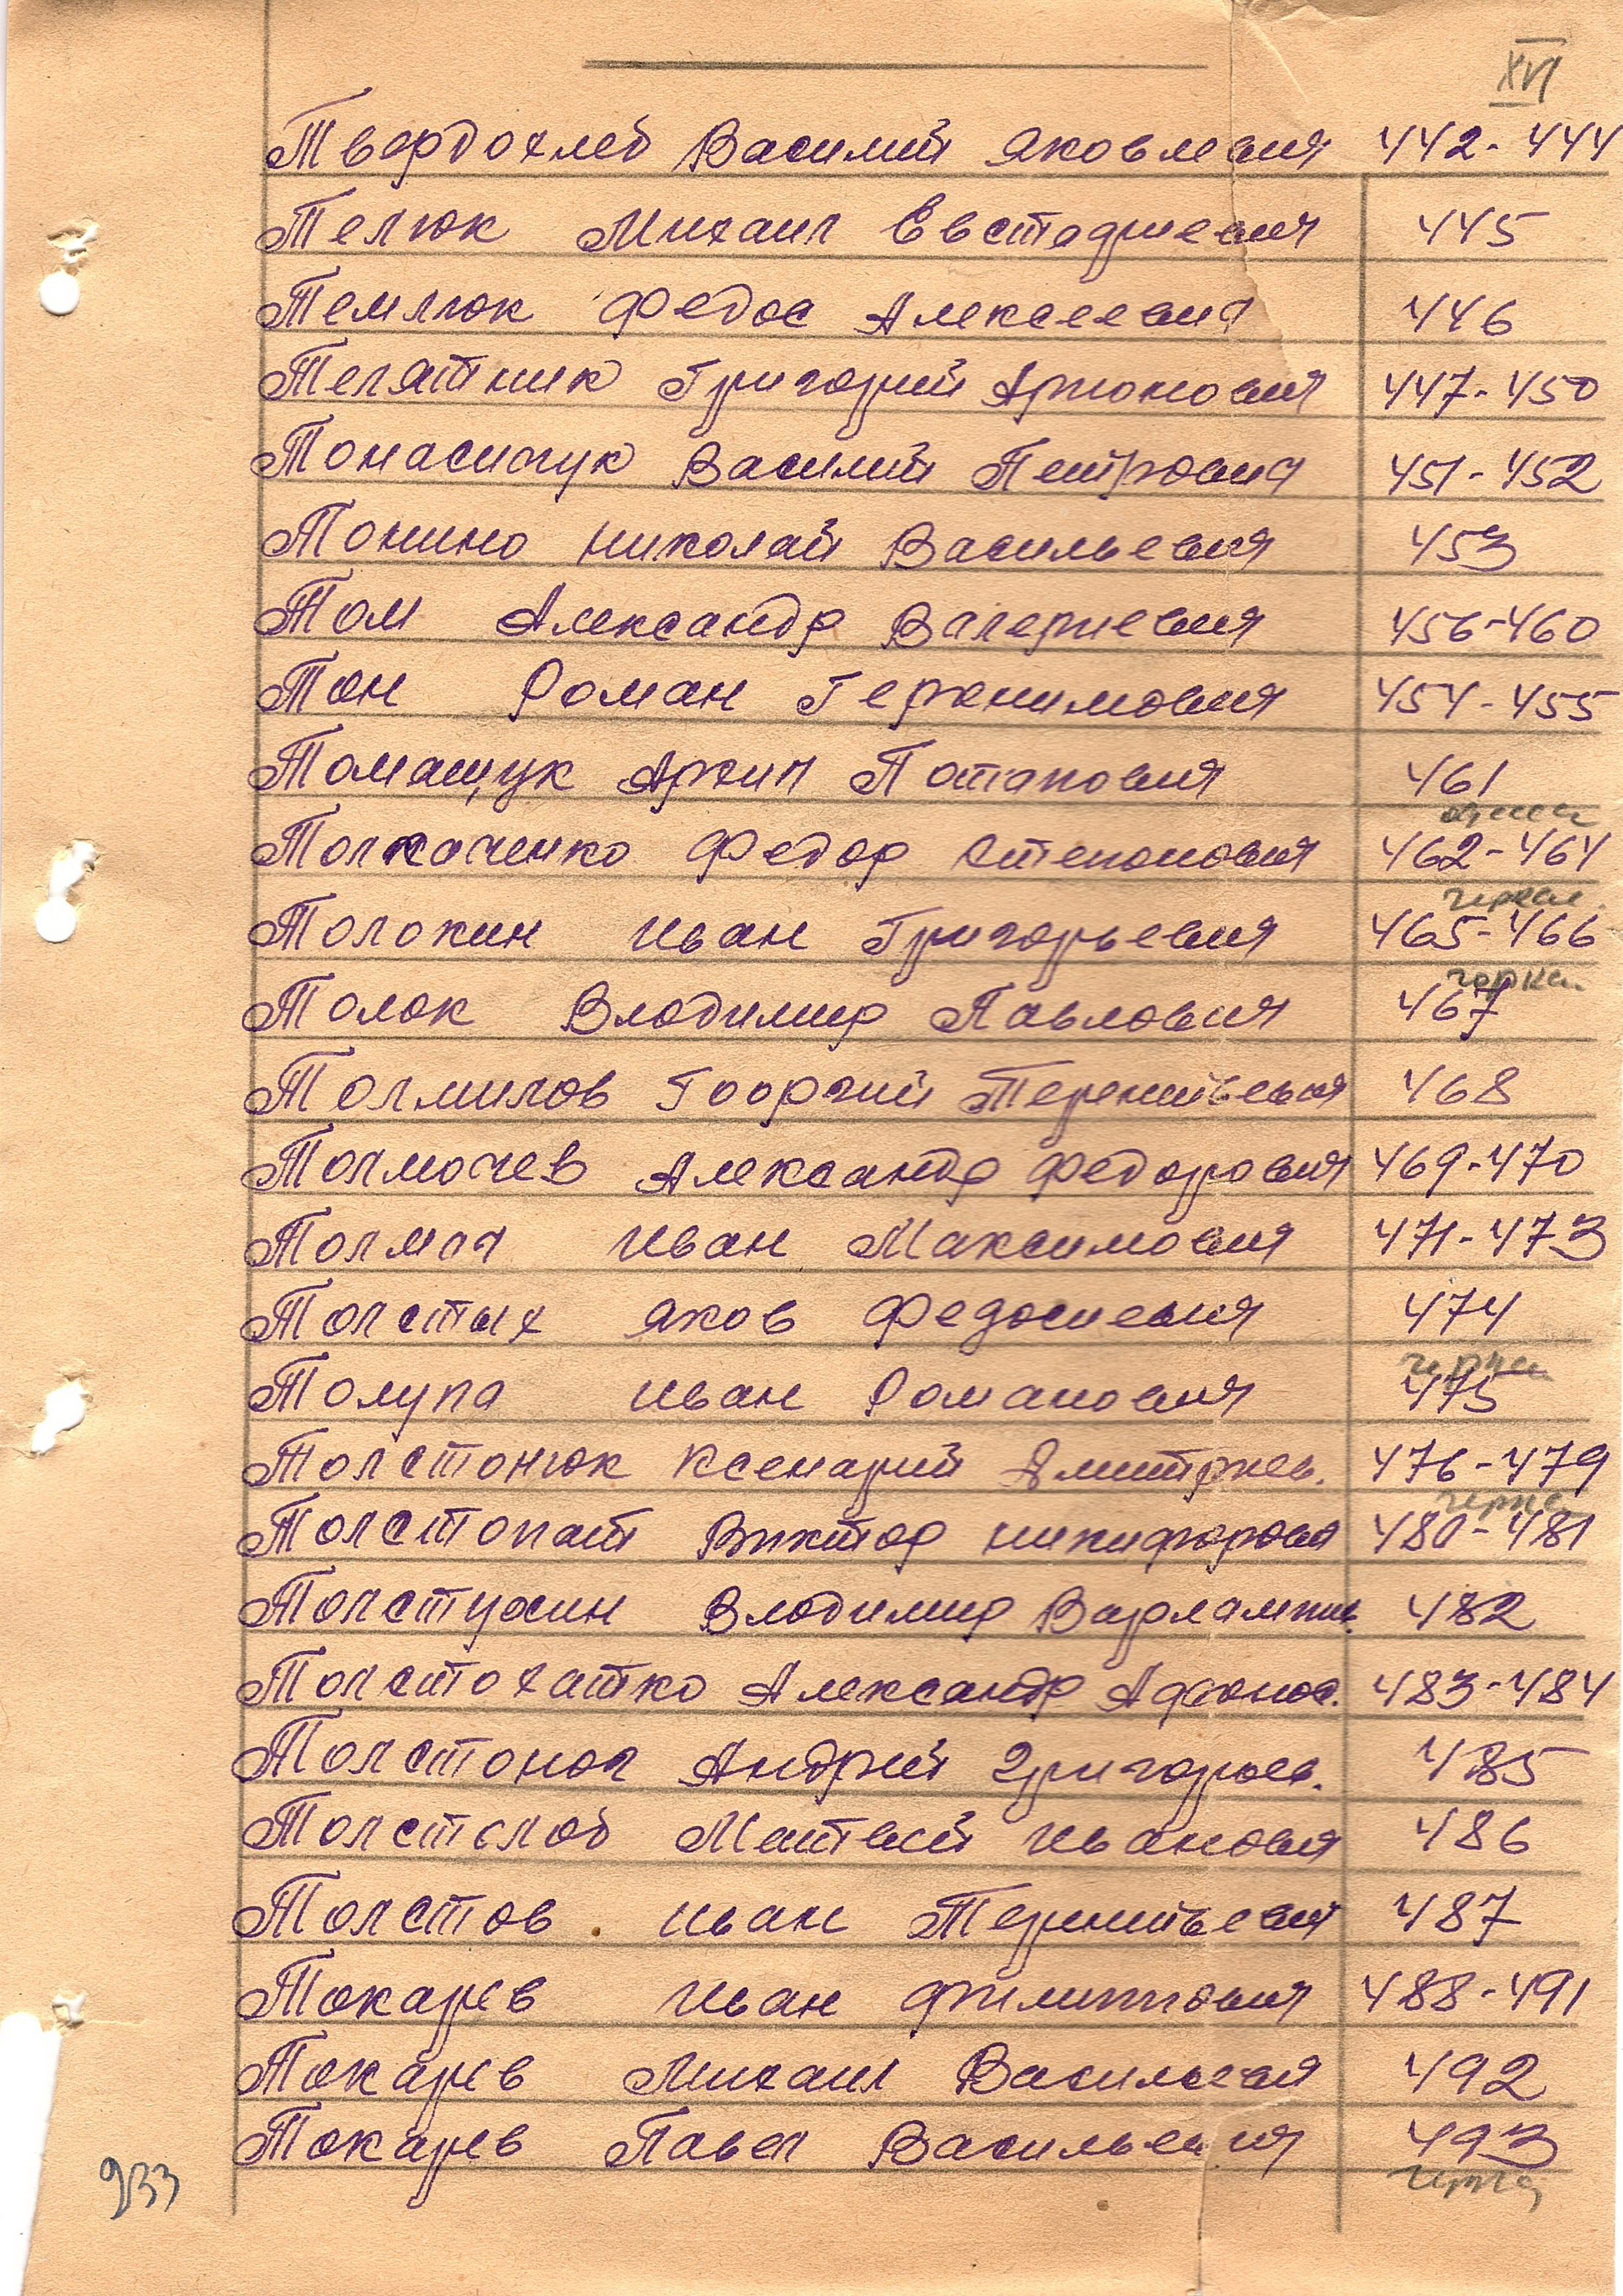 XVI
Твердохлеб Василий Яковлевич 442-444
Телюк Михаил Евстафиевич 445
Темлюк Федос Алексеевич 446
Телятник Григорий Артомович 447-450
Томасичук Василий Петрович 451-452
Томино Николай Васильевич 453
Том Александр Валериевич 456-460
Тон Роман Геронимович 454-455
Томащук Архип Потапович 461
Толкаченко Федор Степонович 462-464
Толокин Иван Григорьевич 465-466
Толок Владимир Павлович 467
Толмилов Гооргий Терентьевич 468
Толмачев Александр Федорович 469-470
Толмач Иван Максимович 471-473
Толстых Яков Федосиевич 474
Толупа Иван Романович 475
Толстонюк Ксенарий Дмитриев. 476-479
Толстопат Виктор Никифорович 480-481
Толстухин Владимир Варлампие. 482
Толстохатко Александр Афонос. 483-484
Толстоног Андрей Григорьев. 485
Толстолоб Матвей Иванович 486
Толстов Иван Терентьевич 487
Токарев Иван Филиппович 488-491
Токарев Михаил Васильевич 492
Токарев Павел Васильевич 493
933